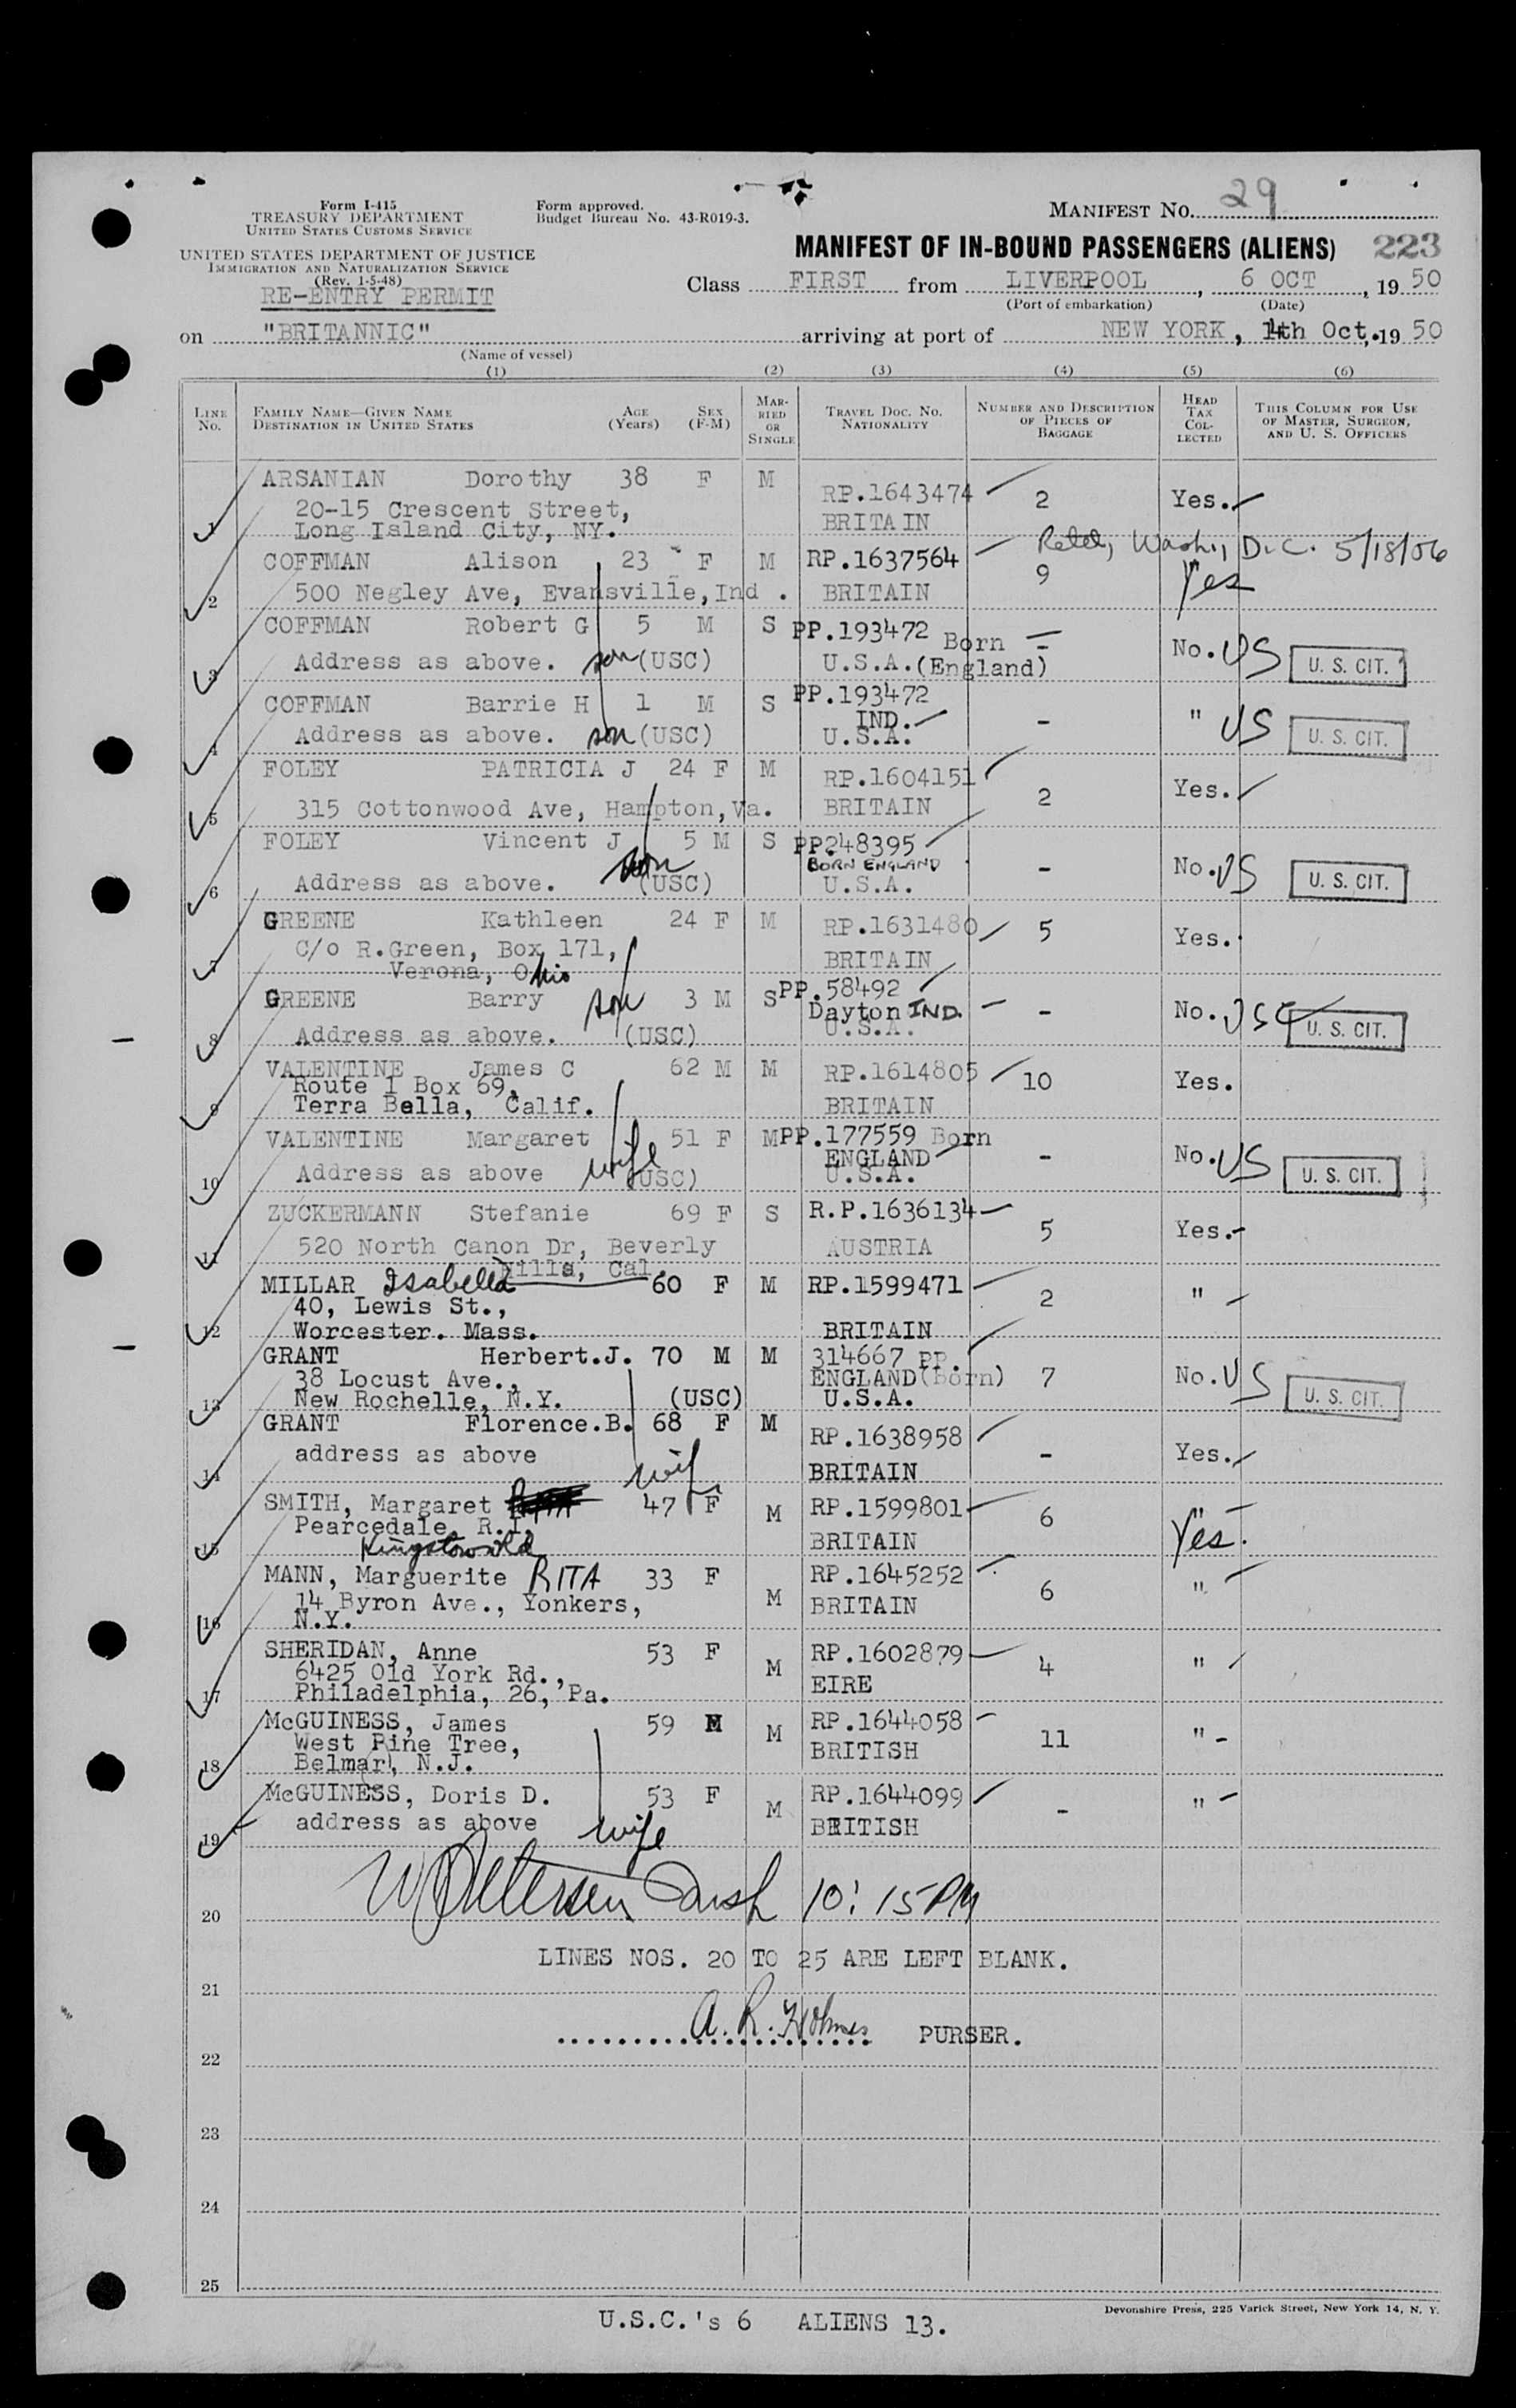 Form I-415
TREASURY DEPARTMENT
UNITED STATES CUSTOMS SERVICE
UNITED STATES DEPARTMENT OF JUSTICE
IMMIGRATION AND NATURALIZATION SERVICE
(Rev. 1-5-48)
RE-ENTRY PERMIT
Form approved.
Budget Bureau No. 43-R019-3.
MANIFEST NO. 29
MANIFEST OF IN-BOUND PASSENGERS (ALIENS) 223
Class FIRST from LIVERPOOL, 6 OCT, 19 50
(Port of embarkation) (Date)
on "BRITANNIC" arriving at port of NEW YORK, 14th Oct, 19 50
(Name of vessel)
(1) (2) (3) (4) (5) (6)
LINE NO.
FAMILY NAME—GIVEN NAME
DESTINATION IN UNITED STATES
AGE (Years)
SEX (F-M)
MARRIED OR SINGLE
TRAVEL DOC. NO.
NATIONALITY
NUMBER AND DESCRIPTION OF PIECES OF BAGGAGE
HEAD TAX COLLECTED
THIS COLUMN FOR USE OF MASTER, SURGEON, AND U. S. OFFICERS
1 ARSANIAN Dorothy 38 F M RP.1643474 2 Yes.
20-15 Crescent Street, BRITAIN
Long Island City, NY.
Washi, D.C. 5/18/56
2 COFFMAN Alison 23 F M RP.1637564 9 Yes
500 Negley Ave, Evansville, Ind. BRITAIN
3 COFFMAN Robert G 5 M S PP.193472 Born - No. US U. S. CIT.
Address as above. son (USC) U.S.A. (England)
4 COFFMAN Barrie H 1 M S PP.193472 - " US U. S. CIT.
IND.
Address as above. son (USC) U.S.A.
5 FOLEY PATRICIA J 24 F M RP.1604151 2 Yes.
315 Cottonwood Ave, Hampton, Va. BRITAIN
6 FOLEY Vincent J 5 M S PP248395 - No. US U. S. CIT.
BORN ENGLAND
Address as above. son (USC) U.S.A.
7 GREENE Kathleen 24 F M RP.1631480 5 Yes.
C/o R.Green, Box 171, BRITAIN
Verona, Ohio
8 GREENE Barry son 3 M S PP.58492 - No. USC U. S. CIT.
Dayton IND.
Address as above. (USC) U.S.A.
9 VALENTINE James C 62 M M RP.1614805 10 Yes.
Route 1 Box 69,
Terra Bella, Calif. BRITAIN
10 VALENTINE Margaret 51 F M PP.177559 Born - No. US U. S. CIT.
ENGLAND
Address as above wife (USC) U.S.A.
11 ZUCKERMANN Stefanie 69 F S R.P.1636134 5 Yes.
520 North Canon Dr, Beverly AUSTRIA
Hills, Cal.
12 MILLAR Isabella 60 F M RP.1599471 2 "
40, Lewis St.,
Worcester. Mass. BRITAIN
13 GRANT Herbert.J. 70 M M 314667 PP. 7 No. US U. S. CIT.
38 Locust Ave., ENGLAND (Born)
New Rochelle, N.Y. (USC) U.S.A.
14 GRANT Florence.B. 68 F M RP.1638958 - Yes.
address as above wife BRITAIN
15 SMITH, Margaret 47 F M RP.1599801 6 Yes.
Pearcedale, R.I, BRITAIN
16 MANN, Marguerite RITA 33 F M RP.1645252 6 "
14 Byron Ave., Yonkers, BRITAIN
N.Y.
17 SHERIDAN, Anne 53 F M RP.1602879 4 "
6425 Old York Rd., EIRE
Philadelphia, 26, Pa.
18 McGUINESS, James 59 M M RP.1644058 11 "
West Pine Tree, BRITISH
Belmar, N.J.
19 McGUINESS, Doris D. 53 F M RP.1644099 - "
address as above wife BRITISH
20 10:15 PM
LINES NOS. 20 TO 25 ARE LEFT BLANK.
21
A. R. Holmes PURSER.
22
23
24
25
Devonshire Press, 225 Varick Street, New York 14, N. Y.
U.S.C.'s 6 ALIENS 13.